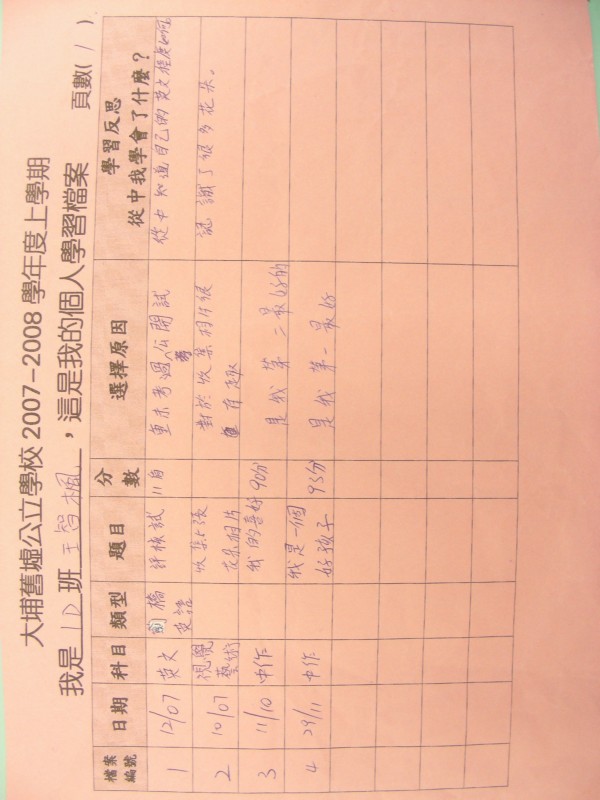 大埔舊墟公立學校 2007-2008 學年度上學期
我是 1D 班 王智楓，這是我的個人學習檔案 頁數( 1 )
檔案編號 日期 科目 類型 題目 分數 選擇原因 學習反思 從中我學會了什麼？
1 12/07 英文 劍橋英語 評核試 11自 重未考過公開試 從中知道自己的英文程度如何
2 10/07 視覺藝術 收集七張花朵相片 對於收集相片很有趣 認識了很多花朵。
3 11/10 中作 我的喜好 90分 是我第二最好的
4 29/11 中作 我是一個好孩子 93分 是我第一最好